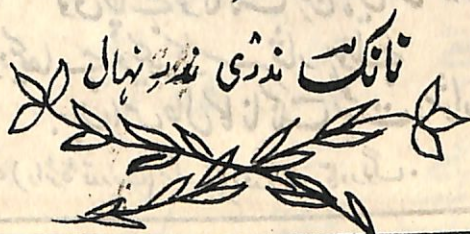 نانک ندری ندر نہال